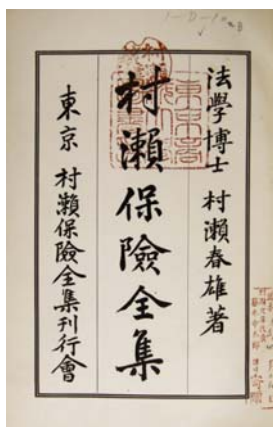 法學博士 村瀨春雄著
村瀨保險全集
東京 村瀨保險全集刊行會